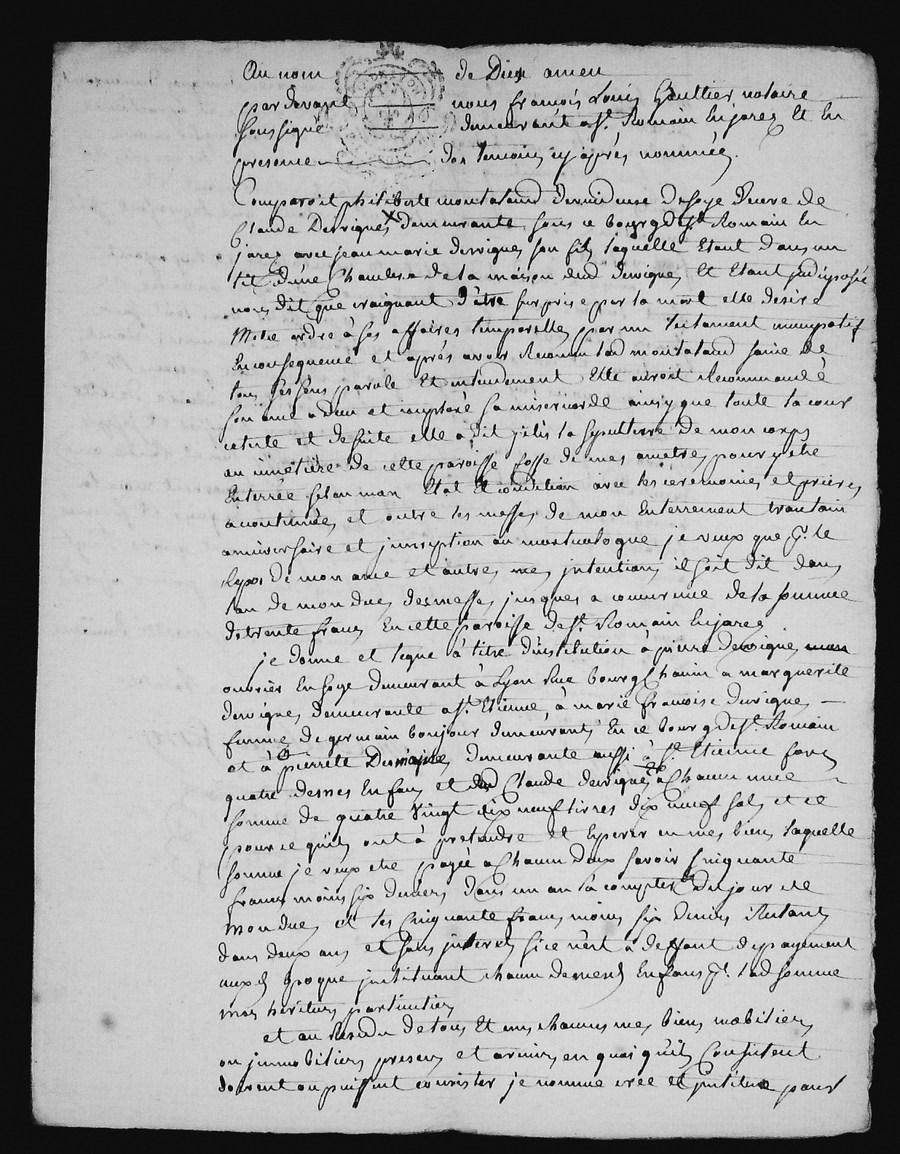 Au nom de Dieu amen
par devant nous françois Louis Gaultier notaire
soussigné demeurant a St. Romain En jarez Et En
presence des temoins cy après nommées.
Comparoit philiberte montaland devuideuse de soye veuve de
Claude Dervigues demeurante sous ce bourg de St. Romain En
jarez avec jean marie dervigues son fils laquelle Etant dans un
lit d'une Chambre de la maison dud dervigues Et Etant indisposée
nous dit que craignant d'être surprise par la mort elle desire
mettre ordre à ses affaires temporelles par un testament nuncupatif
En consequence et après avoir Reconnu lad montaland saine de
tous ses sens parole Et entendement Elle auroit Recommandé
son ame a Dieu et imploré sa misericorde ainsy que toute la cour
celeste et de suite elle a dit j'elis la sepulture de mon corps
au cimetière de cette paroisse fosse de mes ancetres pour y etre
Enterrée selon mon Etat Et condition avec les ceremonies et prieres
accoutumées et outre les messes de mon Enterrement trantain
anniversaire et inscription au martirologue je veux que pr. le
repos de mon ame et autres mes intentions il soit dit dans
l'an de mon duces des messes jusques a concurrence de la somme
de trente francs En cette paroisse de St. Romain En jarez
je donne et legue à titre d'institution à pierre dervigues
ouvrier En soye demeurant à Lyon Rue bourg Chanin a marguerite
dervigues demeurante a St. Etienne, à marie francoise dervigues
femme de germain bonjour demeurants En ce bourg de St. Romain
et à pierrete demeurante aussi à St. Etienne tous
quatre de mes Enfans et dud Claude dervigues à Chacun une
somme de quatre vingt dix neuf livres dix neuf sols et ce
pour ce qu'ils ont à pretendre et Esperer en mes biens laquelle
somme je veux etre payée a Chacun deux savoir Cinquante
francs moins six deniers dans un an à compter du jour de
mon duces et les Cinquante francs moins six deniers Restants
dans deux ans et sans interets si ce n'est à deffaut de payement
auxd Epoque instituant chacun de mesd Enfans pr. lad somme
mes heritiers particuliers
et au Residu de tous Et uns chacuns mes biens mobiliers
ou immobiliers presens et avenirs en quoi qu'ils Consistent
doivent ou puissent consister je nomme cree et institue pour